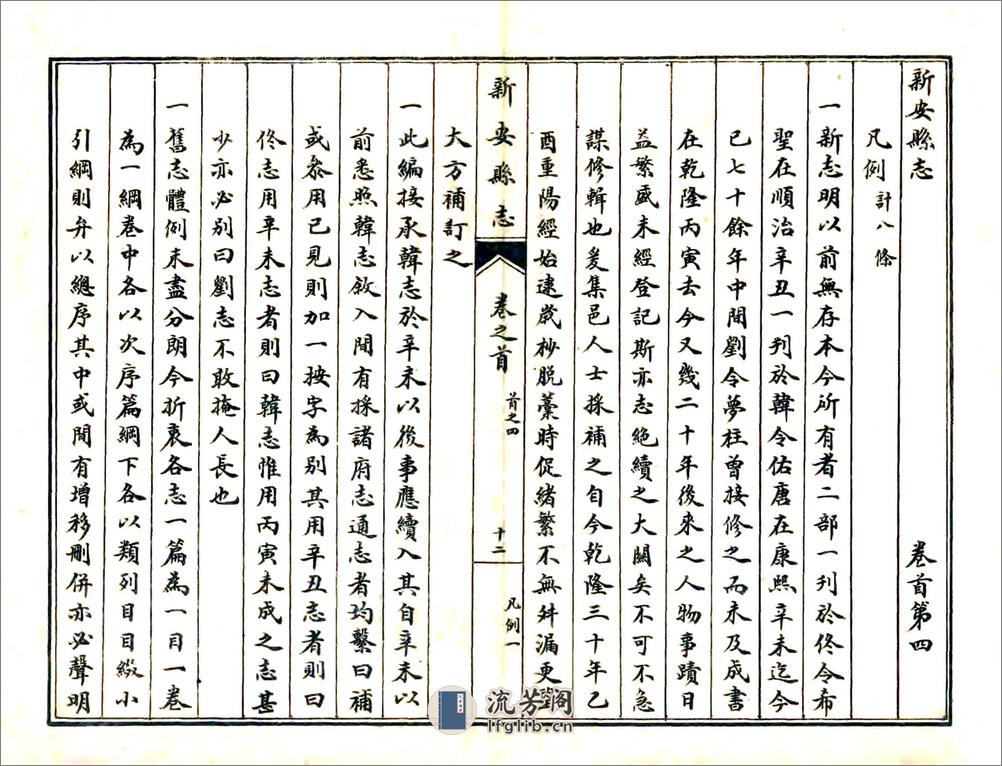 新安縣志　卷首第四
凡例計八條
一新志明以前無存本今所有者二部一刊於佟令希
聖在順治辛丑一刊於韓令佑唐在康熙辛未迄今
已七十餘年中間劉令夢柱曾接修之而未及成書
在乾隆丙寅去今又幾二十年後來之人物事蹟日
益繁盛未經登記斯亦志絕續之大關矣不可不急
謀修輯也爰集邑人士採補之自今乾隆三十年乙
酉重陽經始逮歲杪脫藁時促緒繁不無舛漏更
新安縣志　卷之首　首之四　十二　凡例一
大方補訂之
一此編接承韓志於辛未以後事應續入其自辛未以
前悉照韓志敘入間有採諸府志通志者均繫曰補
或叅用已見則加一按字為別其用辛丑志者則曰
佟志用辛未志者則曰韓志惟用丙寅未成之志甚
少亦必別曰劉志不敢掩人長也
一舊志體例未盡分朗今折衷各志一篇為一目一卷
為一綱卷中各以次序篇綱下各以類列目目綴小
引綱則弁以總序其中或間有增移刪併亦必聲明
流芳閣
lfglib.cn